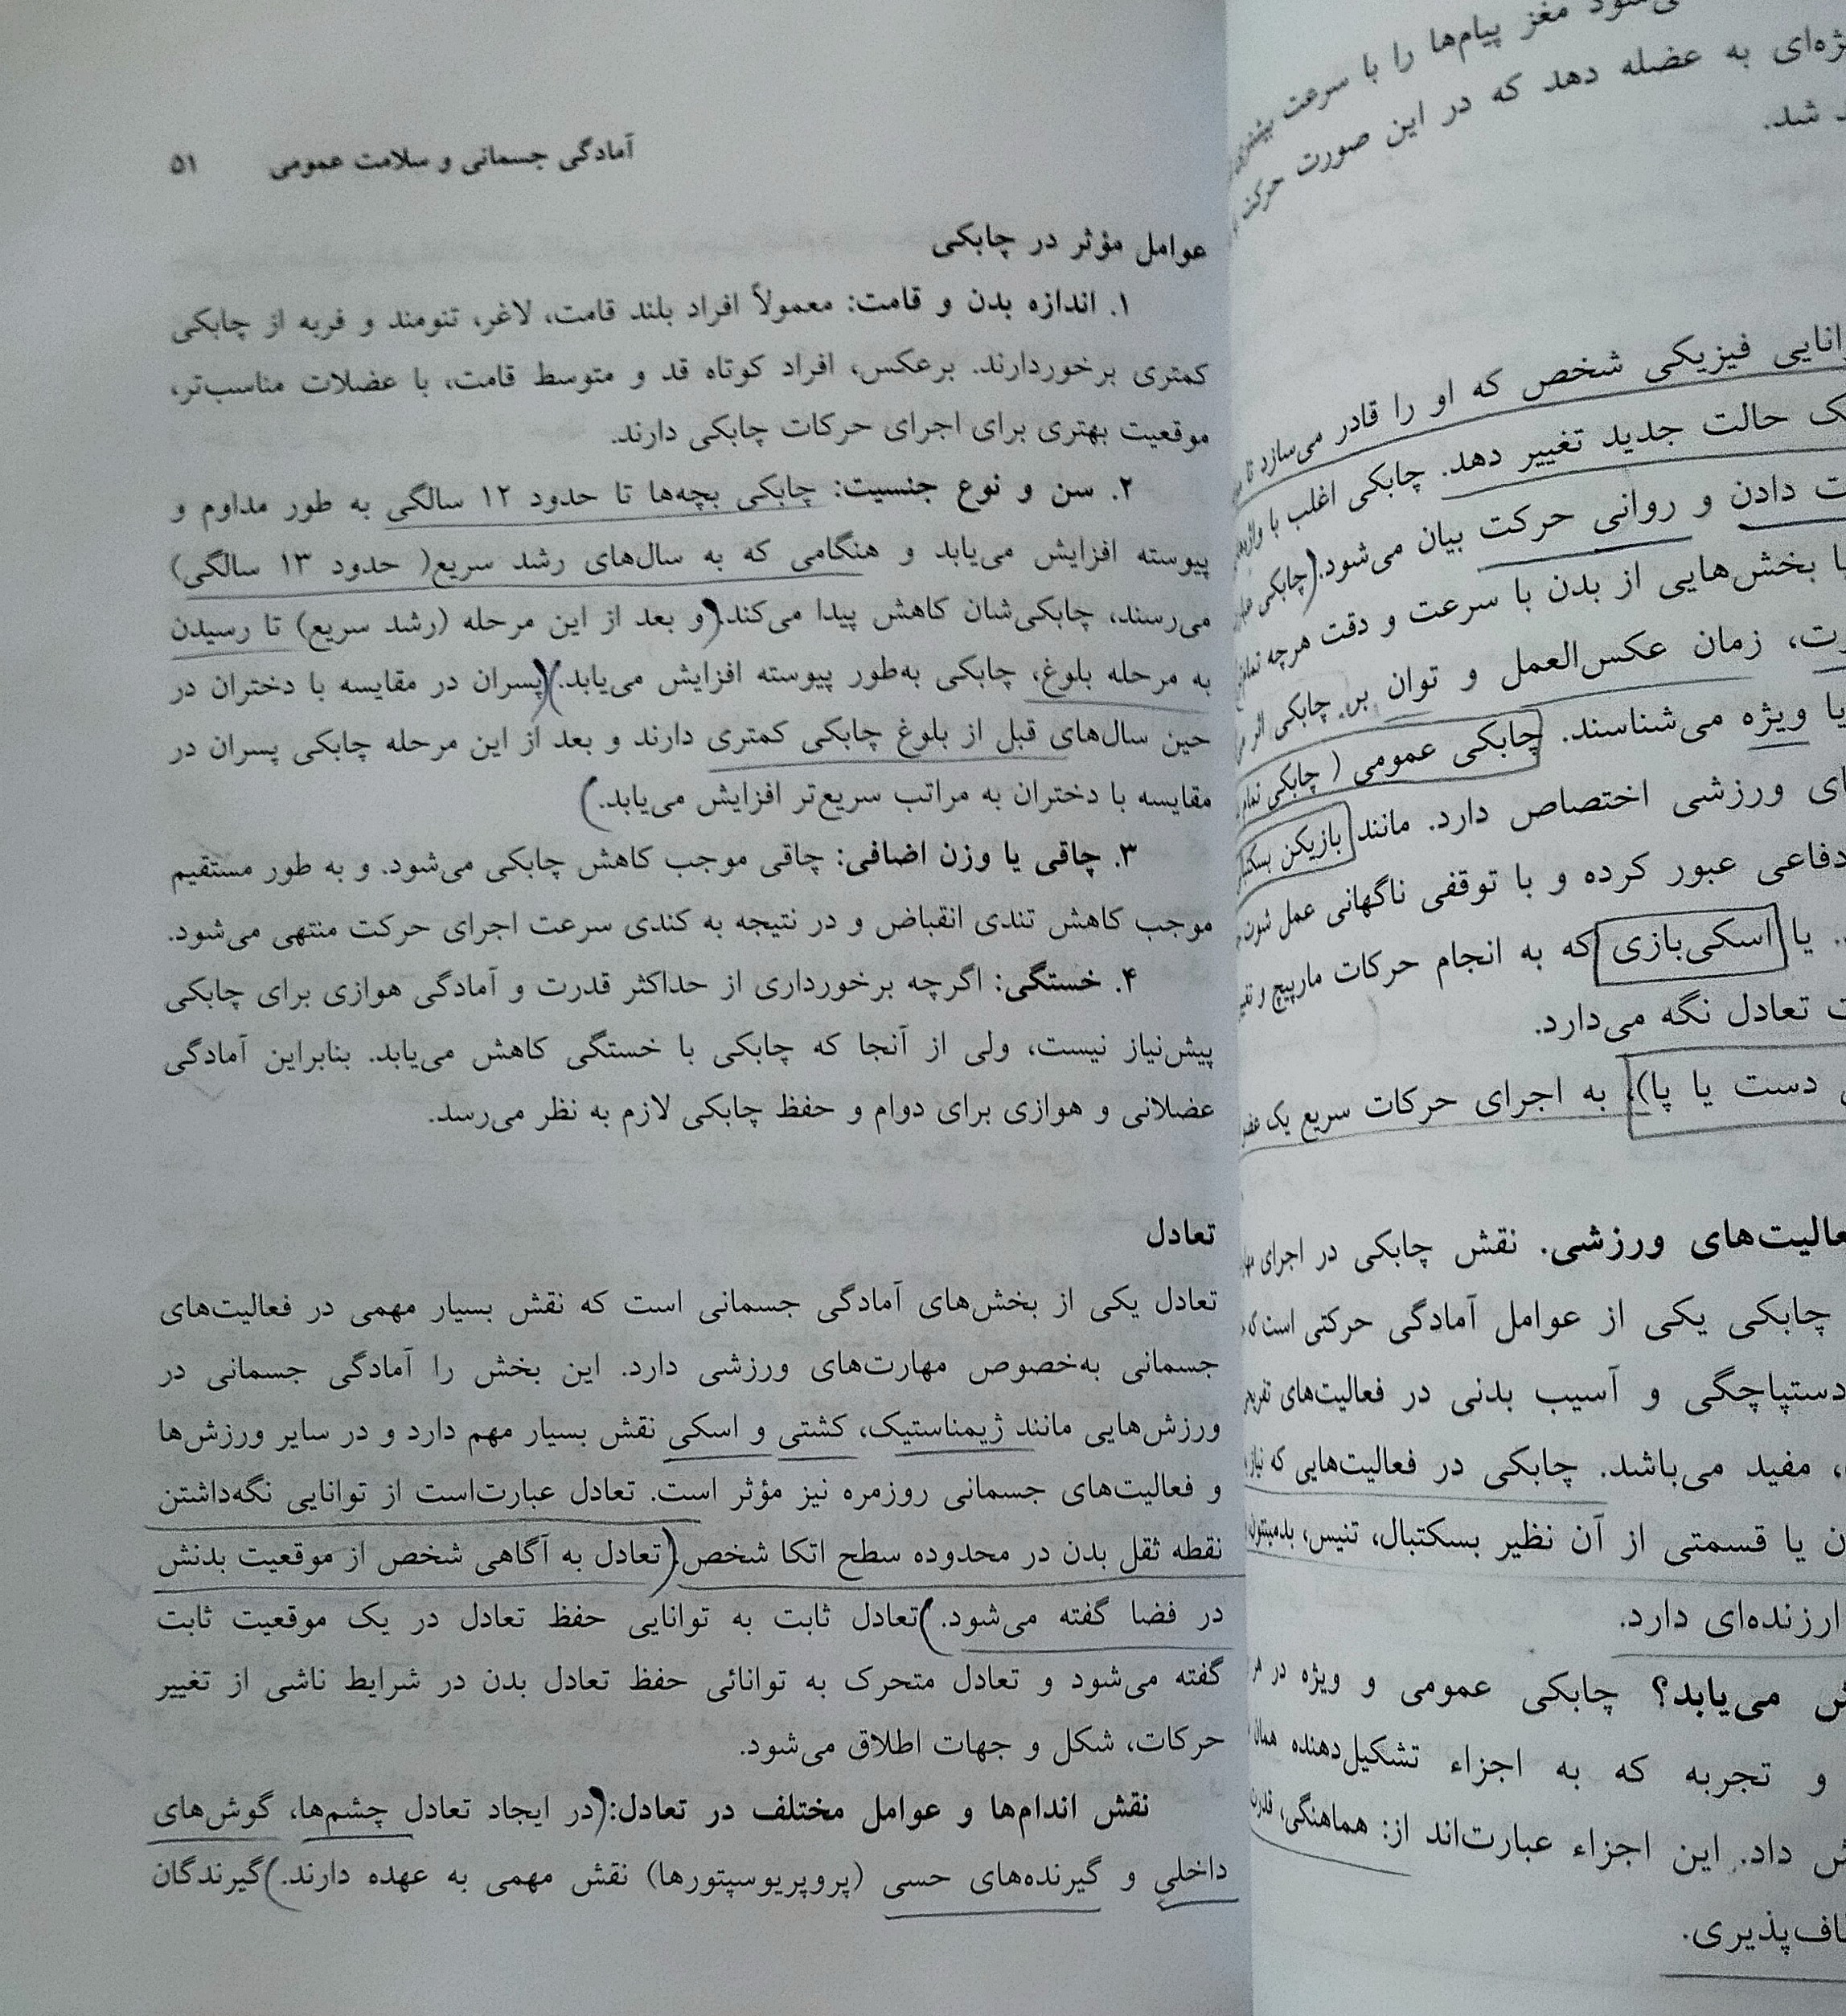 می‌شود مغز پیام‌ها را با سرعت بیشتری
ژه‌ای به عضله دهد که در این صورت حرکت
شد.
انایی فیزیکی شخص که او را قادر می‌سازد تا
ک حالت جدید تغییر دهد. چابکی اغلب با
ت دادن و روانی حرکت بیان می‌شود. (چابکی
ا بخش‌هایی از بدن با سرعت و دقت هرچه
رت، زمان عکس‌العمل و توان بر چابکی اثر
یا ویژه می‌شناسند. چابکی عمومی ( چابکی تمام
ای ورزشی اختصاص دارد. مانند بازیکن
دفاعی عبور کرده و با توقفی ناگهانی عمل
. یا اسکی‌بازی که به انجام حرکات مارپیچ و
ت تعادل نگه می‌دارد.
دست یا پا)، به اجرای حرکات سریع یک
عالیت‌های ورزشی. نقش چابکی در اجرای
چابکی یکی از عوامل آمادگی حرکتی است که
دستپاچگی و آسیب بدنی در فعالیت‌های
، مفید می‌باشد. چابکی در فعالیت‌هایی که
ن یا قسمتی از آن نظیر بسکتبال، تنیس، بدمینتون
ارزنده‌ای دارد.
ش می‌یابد؟ چابکی عمومی و ویژه در
و تجربه که به اجزاء تشکیل‌دهنده همان
ش داد. این اجزاء عبارت‌اند از: هماهنگی، قدرت
اف‌پذیری.
آمادگی جسمانی و سلامت عمومی ۵۱
عوامل مؤثر در چابکی
۱. اندازه بدن و قامت: معمولاً افراد بلند قامت، لاغر، تنومند و فربه از چابکی
کمتری برخوردارند. برعکس، افراد کوتاه قد و متوسط قامت، با عضلات مناسب‌تر،
موقعیت بهتری برای اجرای حرکات چابکی دارند.
۲. سن و نوع جنسیت: چابکی بچه‌ها تا حدود ۱۲ سالگی به طور مداوم و
پیوسته افزایش می‌یابد و هنگامی که به سال‌های رشد سریع( حدود ۱۳ سالگی)
می‌رسند، چابکی‌شان کاهش پیدا می‌کند. و بعد از این مرحله (رشد سریع) تا رسیدن
به مرحله بلوغ، چابکی به‌طور پیوسته افزایش می‌یابد. پسران در مقایسه با دختران در
حین سال‌های قبل از بلوغ چابکی کمتری دارند و بعد از این مرحله چابکی پسران در
مقایسه با دختران به مراتب سریع‌تر افزایش می‌یابد.
۳. چاقی یا وزن اضافی: چاقی موجب کاهش چابکی می‌شود. و به طور مستقیم
موجب کاهش تندی انقباض و در نتیجه به کندی سرعت اجرای حرکت منتهی می‌شود.
۴. خستگی: اگرچه برخورداری از حداکثر قدرت و آمادگی هوازی برای چابکی
پیش‌نیاز نیست، ولی از آنجا که چابکی با خستگی کاهش می‌یابد. بنابراین آمادگی
عضلانی و هوازی برای دوام و حفظ چابکی لازم به نظر می‌رسد.
تعادل
تعادل یکی از بخش‌های آمادگی جسمانی است که نقش بسیار مهمی در فعالیت‌های
جسمانی به‌خصوص مهارت‌های ورزشی دارد. این بخش را آمادگی جسمانی در
ورزش‌هایی مانند ژیمناستیک، کشتی و اسکی نقش بسیار مهم دارد و در سایر ورزش‌ها
و فعالیت‌های جسمانی روزمره نیز مؤثر است. تعادل عبارت‌است از توانایی نگه‌داشتن
نقطه ثقل بدن در محدوده سطح اتکا شخص. تعادل به آگاهی شخص از موقعیت بدنش
در فضا گفته می‌شود. تعادل ثابت به توانایی حفظ تعادل در یک موقعیت ثابت
گفته می‌شود و تعادل متحرک به توانائی حفظ تعادل بدن در شرایط ناشی از تغییر
حرکات، شکل و جهات اطلاق می‌شود.
نقش اندام‌ها و عوامل مختلف در تعادل: در ایجاد تعادل چشم‌ها، گوش‌های
داخلی و گیرنده‌های حسی (پروپریوسپتورها) نقش مهمی به عهده دارند. گیرندگان